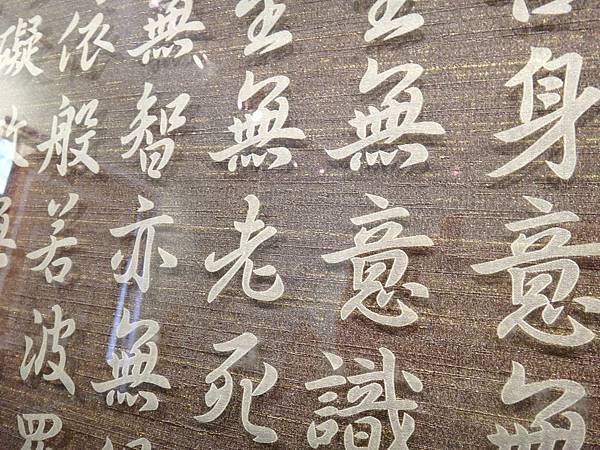 身意無
至無意識
至無老死
無智亦無
依般若波羅
礙故無